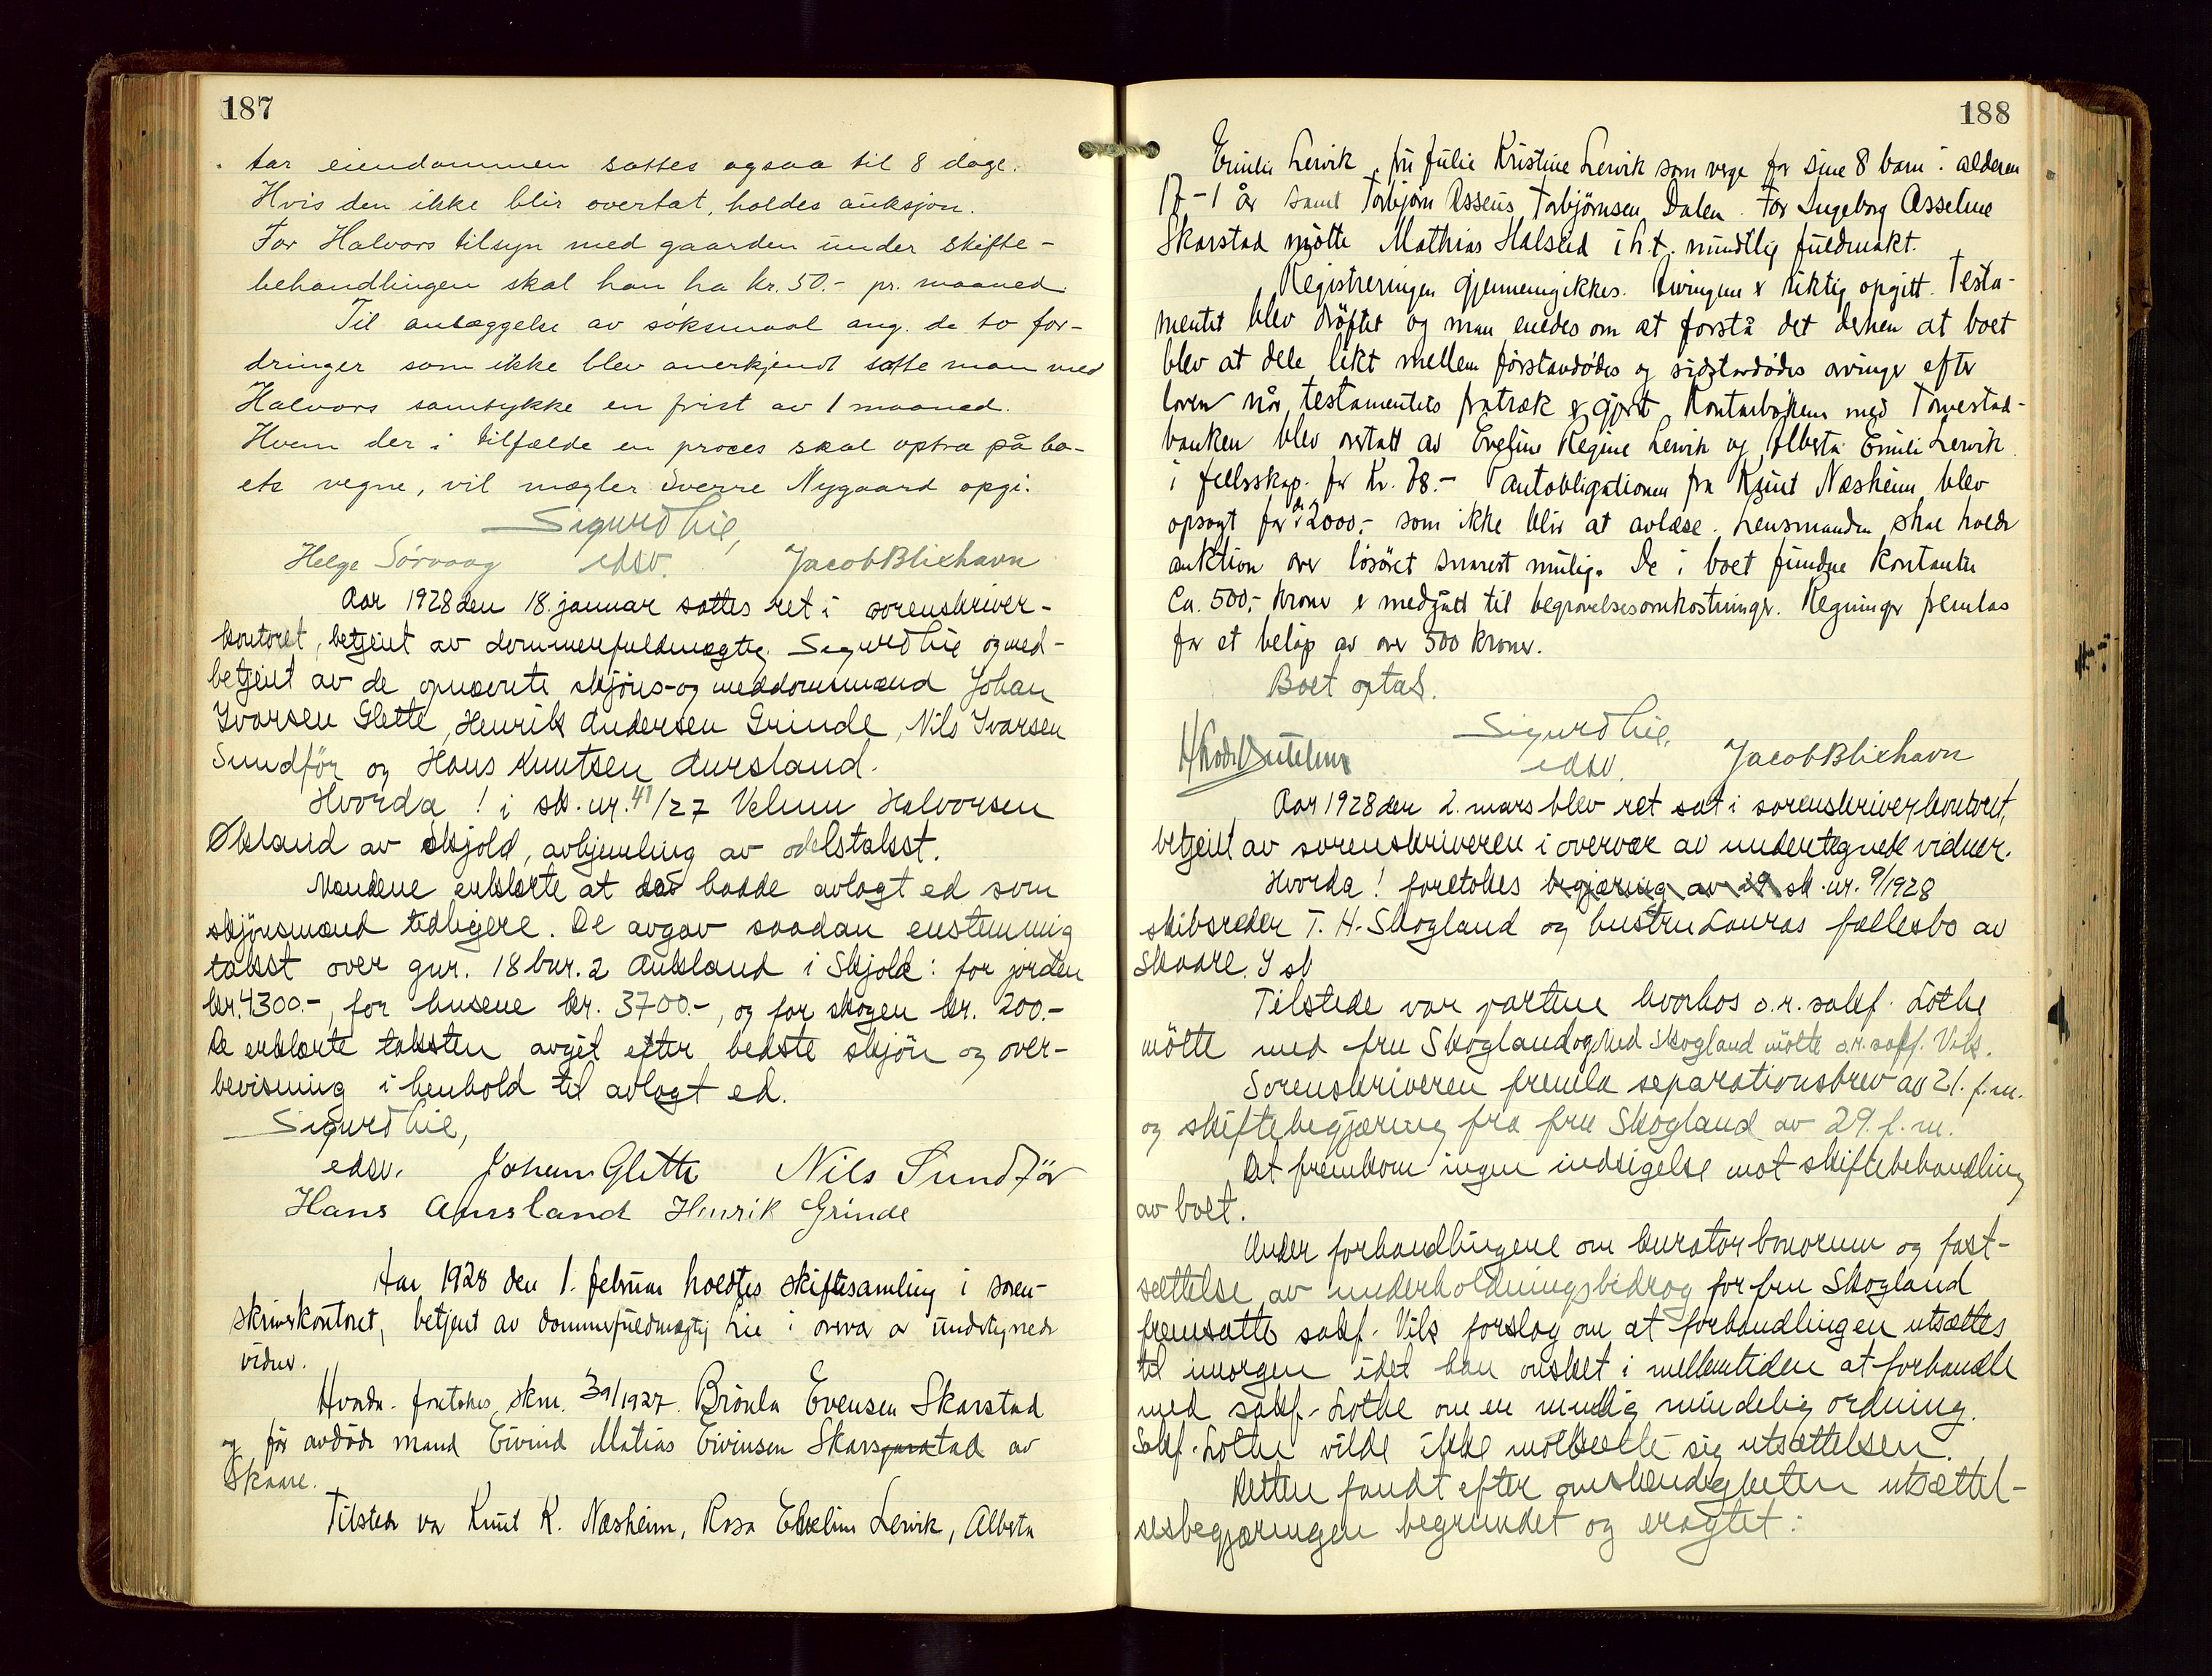 187
tar eiendommen sattes ogsaa til 8 dage.
Hvis den ikke blir overtat, holdes auksjon.
For Halvors tilsyn med gaarden under skifte-
behandlingen skal han ha kr. 50.- pr. maaned.
Til anlæggelse av søksmaal ang. de to for-
dringer som ikke blev anerkjendt satte man med
Halvors samtykke en frist av 1 maaned.
Hvem der i tilfælde en proces skal optræ på bo-
ets vegne, vil mægler Sverre Nygaard opgi.
Sigurd Lie,
Helge Sörvaag edsv. Jacob Blixhavn
Aar 1928 den 18. januar sattes ret i sorenskriver-
kontoret, betjent av dommerfuldmægtig Sigurd Lie og med-
betjent av de opnævnte skjöns- og meddommænd Johan
Ivarsen Glette, Henrik Andersen Grinde, Nils Ivarsen
Sundför og Hans Knutsen Aursland.
Hvorda! i sk. nr. 41/27 Velum Halvorsen
Økland av Skjold, avhjemling av odelstakst.
Mændene erklærte at de hadde avlagt ed som
skjönsmænd tidligere. De avgav saadan enstemmig
takst over gnr. 18 bnr. 2 Auksland i Skjold: for jorden
kr. 4300.-, for husene kr. 3700.-, og for skogen kr. 200.-
De erklærte taksten avgit efter bedste skjön og over-
bevisning i henhold til avlagt ed.
Sigurd Lie,
edsv. Johan Glette Nils Sundför
Hans Aursland Henrik Grinde
Aar 1928 den 1. februar holdtes skiftesamling i soren-
skriverkontoret, betjent av dommerfuldmægtig Lie i overvær av undertegnede
vidner.
Hvorda. foretokes sknr. 39/1927. Brönla Evensen Skarstad
og för avdöde mand Eivind Matias Eivinsen Skarsgardtad av
Skaare.
Tilstede var Knut K. Næsheim, Rosa Eveline Lervik, Alberta
188
Emilie Lervik, fru Julie Kristine Lervik som verge for sine 8 barn i alderen
17-1 år samt Torbjörn Asseus Torbjörnsen Dalen. For Ingeborg Asseline
Skarstad mötte Mathias Halseid i h.t. mundtlig fuldmakt.
Registreringen gjennemgikkes. Arvingene er riktig opgitt. Testa-
mentet blev dröftet og man enedes om at forstå det derhen at boet
blev at dele likt mellem förstavdödes og sidstavdödes arvinger efter
loven når testamentets fratræk er gjort. Kontraboken med Torvestad-
banken blev overtatt av Eveline Regine Lervik og Alberta Emilie Lervik
i fellesskap for Kr. 78.- Pantobligationen fra Knut Næsheim blev
opsagt for de 2000,- som ikke blir at avlæse. Lensmanden skal holde
auktion over lösöret snarest mulig. De i boet fundne kontanter
Ca. 500,- kroner er medgått til begravelsesomkostninger. Regninger fremlas
for et belöp av over 500 kroner.
Boet optat.
Sigurd Lie,
edsv. Jacob Blixhavn
Aar 1928 den 2. mars blev ret sat i sorenskriverkontoret,
betjent av sorenskriveren i overvær av undertegnede vidner.
Hvorda! foretokes begjæring av 29 sk. nr. 9/1928
skibsreder T. H. Skogland og hustru Lauras fællesbo av
Skaare. I sk
Tilstede var partene hvorhos o.r. sakf. Lothe
mötte med fru Skogland og med Skogland mötte o.r. sakf. Vik.
Sorenskriveren fremla separationsbrev av 21. f.m.
og skiftebegjæring fra fru Skogland av 29. f. m.
Det fremkom ingen indsigelse mot skiftebehandling
av boet.
Under forhandlingene om kurator bonorum og fast-
sættelse av underholdningsbidrag for fru Skogland
fremsatte sakf. Vik forslag om at forhandlingen utsættes
til imorgen idet han önsket i mellemtiden at forhandle
med sakf. Lothe om en mulig mindelig ordning.
Sakf. Lothe vilde ikke motsætte sig utsættelsen.
Retten fandt efter omstændigheten utsættel-
sesbegjæringen begrundet og eragtet: